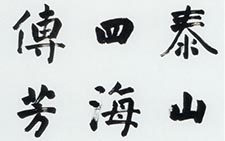 泰山
四海
傳芳